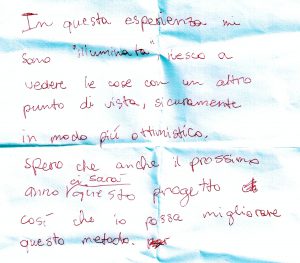 In questa esperienza mi
sono "illuminata" riesco a
vedere le cose con un altro
punto di vista, sicuramente
in modo più ottimistico.
Spero che anche il prossimo
anno ci sarà questo progetto
così che io possa migliorare
questo metodo.